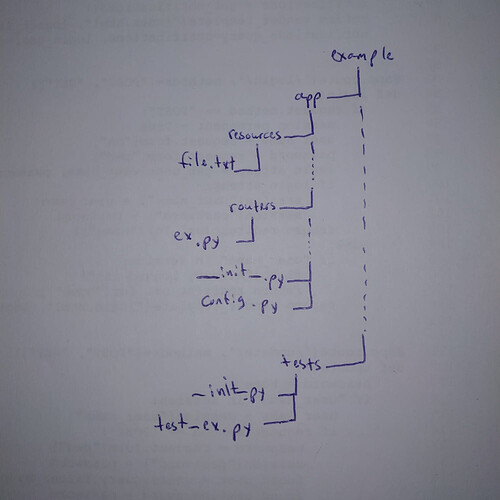 example
app
resources
file.txt
routers
ex.py
__init__.py
config.py
tests
__init__.py
test_ex.py